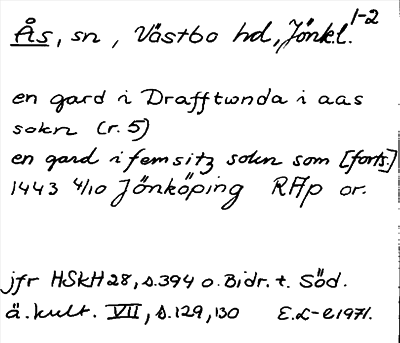 Ås, sn, Västbo hd, Jönk.l. 1-2
en gard i Drafftwnda i aas
sokn (r. 5)
en gard i femsitz sokn som [forts.]
1443 4/10 Jönköping RAp or.
jfr HSkH 28, s. 394 o. Bidr. t. Söd.
ä. kult. VII, s. 129, 130 E.L-e 1971.